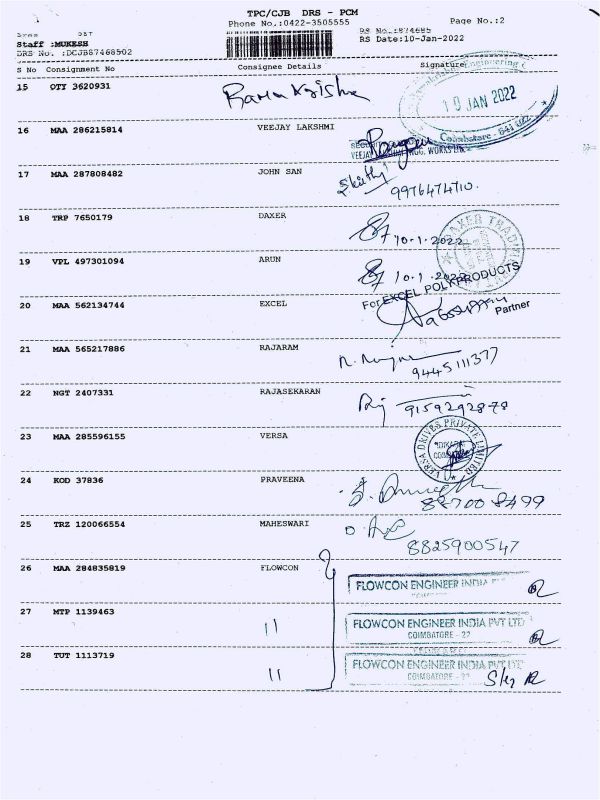 TPC/CJB DRS - PCM
Phone No.:0422-3505555 Page No.:2
Staff :MUKESH RS No.:874685
DRS No. :DCJB87468502 RS Date:10-Jan-2022
S No Consignment No Consignee Details Signature
15 OTY 3620931 Rama Krishna
10 JAN 2022
Coimbatore - 641
16 MAA 286215814 VEEJAY LAKSHMI
VEEJAY LAKSHMI ENGG. WORKS LTD
17 MAA 287808482 JOHN SAN
9976474710.
18 TRP 7650179 DAXER 10-1-2022
DAXER TRADING
19 VPL 497301094 ARUN 10.1.2022
For EXCEL POLYPRODUCTS
20 MAA 562134744 EXCEL
Partner
21 MAA 565217886 RAJARAM
9445111377
22 NGT 2407331 RAJASEKARAN 9159292878
23 MAA 285596155 VERSA
VERSA DRIVES PRIVATE LIMITED
24 KOD 37836 PRAVEENA
887008499
25 TRZ 120066554 MAHESWARI
8825900547
26 MAA 284835819 FLOWCON
FLOWCON ENGINEER INDIA
27 MTP 1139463 11
FLOWCON ENGINEER INDIA PVT LTD
COIMBATORE - 22
28 TUT 1113719 11
FLOWCON ENGINEER INDIA PVT LTD
COIMBATORE - 22